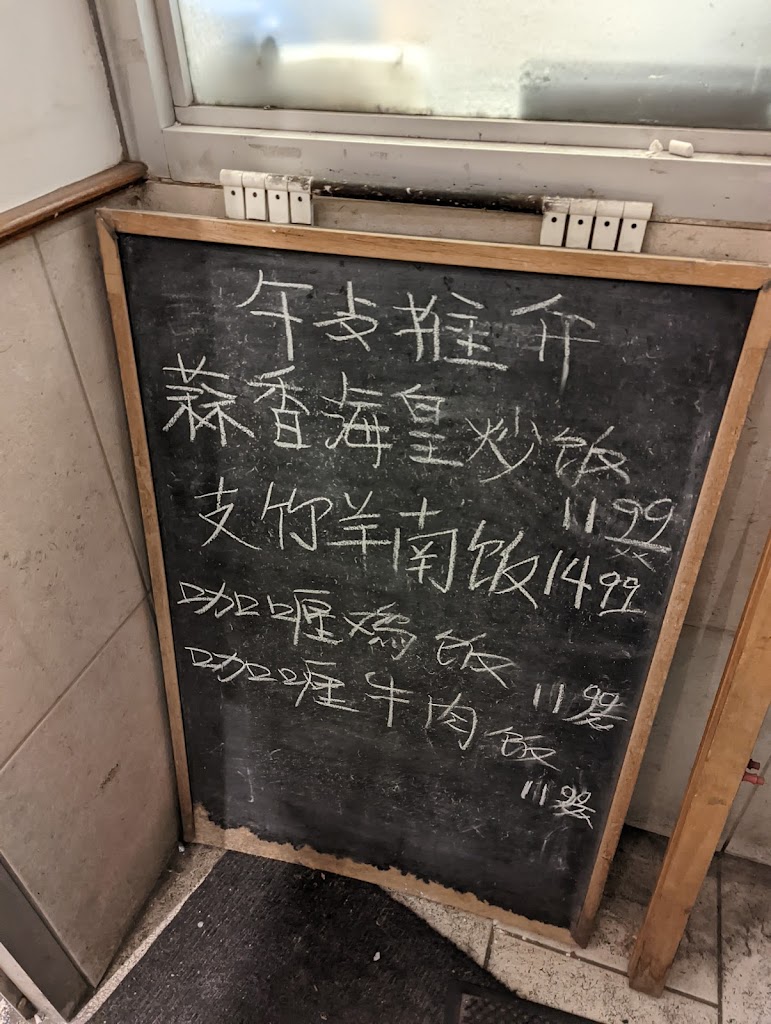 午支推介
蒜香海皇炒饭
11.99
支竹羊南饭 14.99
咖喱鸡饭
11.99
咖喱牛肉饭
11.99